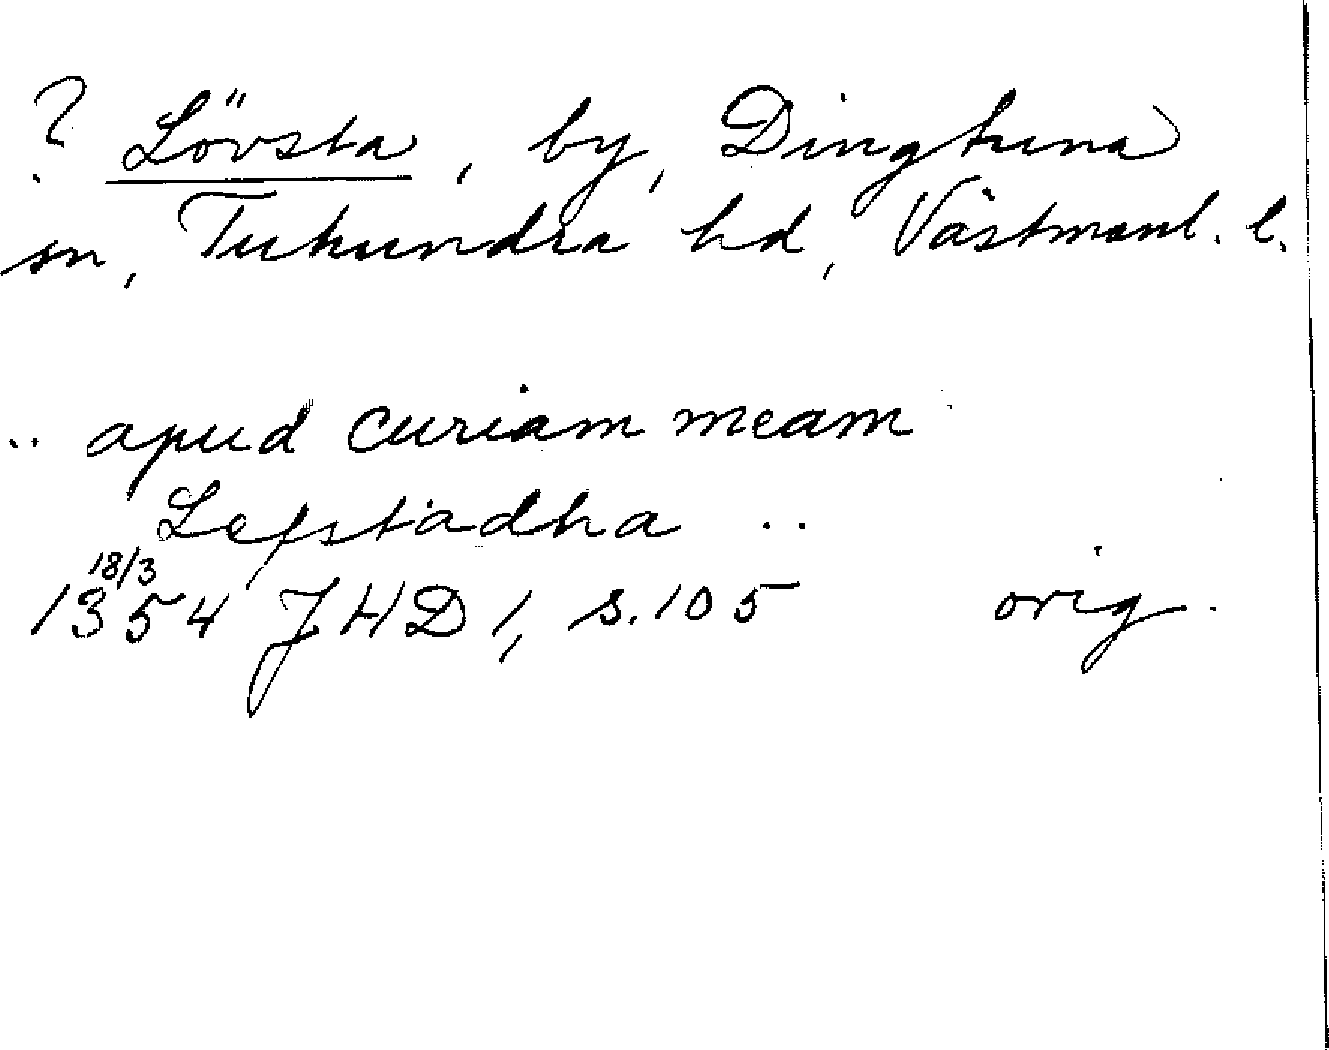 ? Lövsta, by, Dingtuna
sn, Tuhundra hd, Västmanl. l.
.. apud curiam meam
Lefstadha ..
18/3
1354 JHD 1, s. 105 orig.